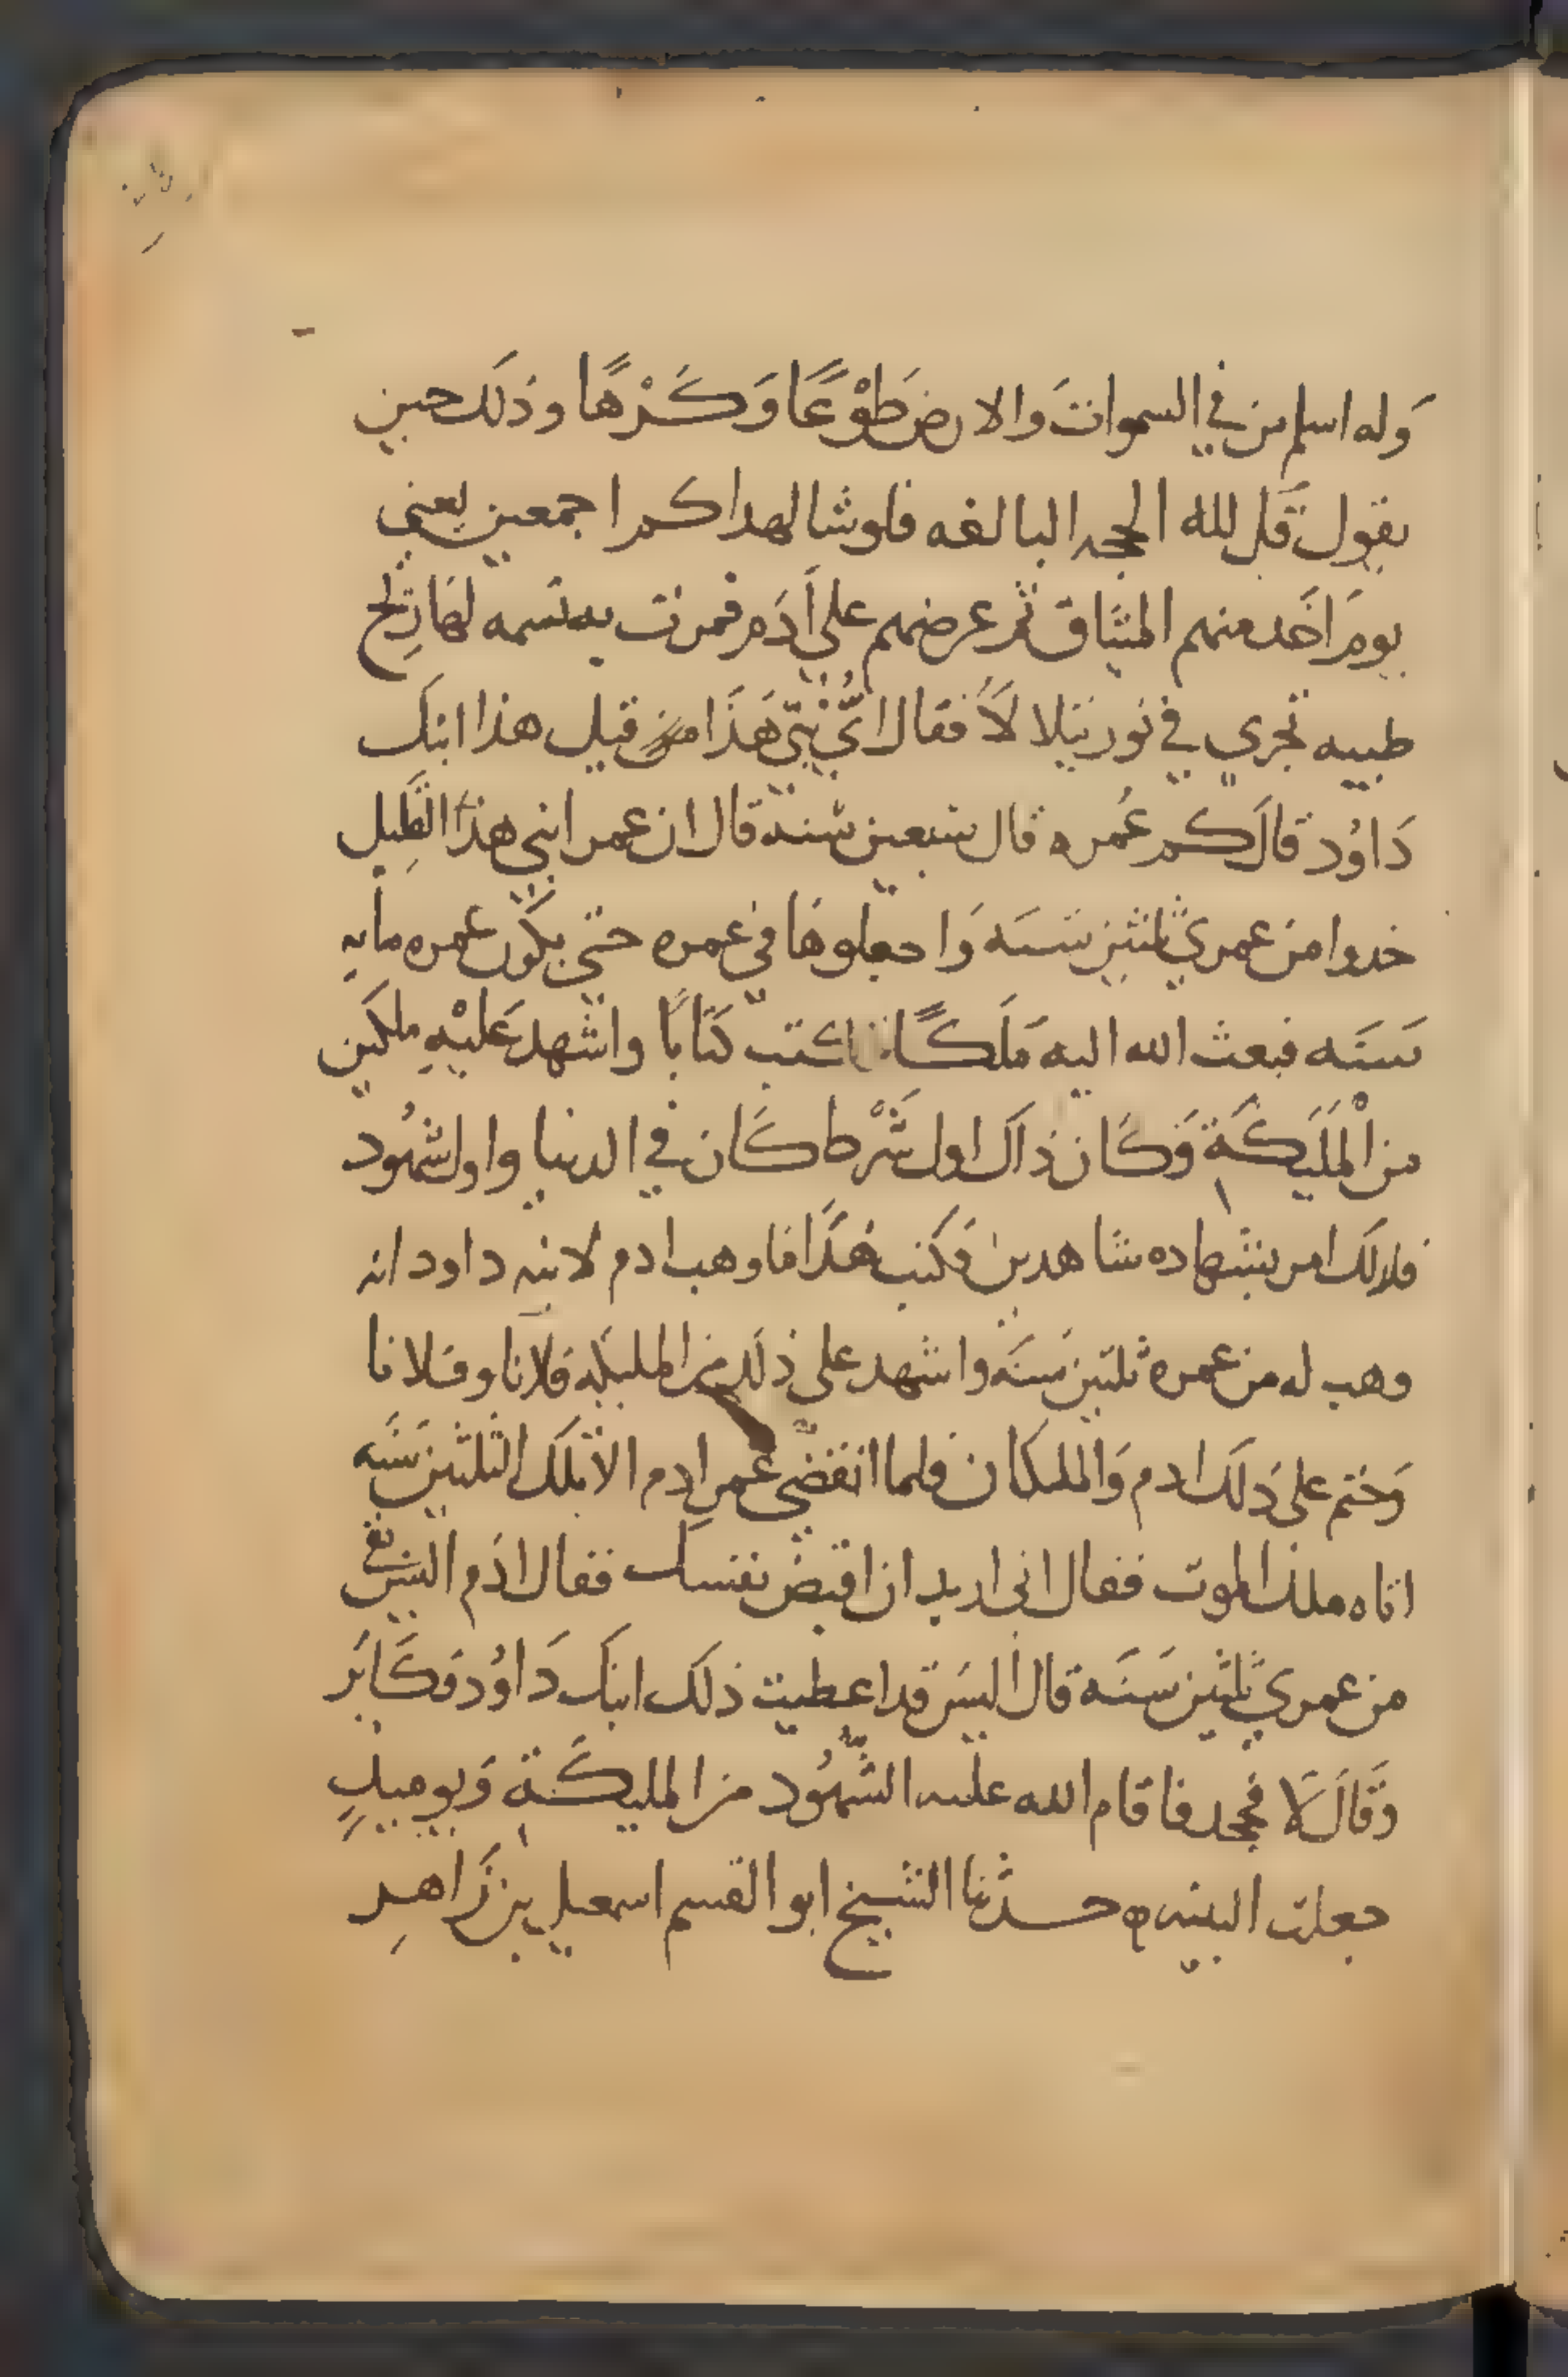 وَله اسلم من في السموات وَالارض طَوْعًا وَكَرْهًا وذلَك حين
يقول قل لله الحجه البالغه فلوشا لهداكم اجمعين يعني
يومَ اخَد منهم الميثاق ثم عرضهم على اَدَم فمرت به نسمه لها ريح
طيبه تجري في نور يتلالَأ فقال ايُّ نبيّ هَذَا من قيل هذا ابنك
دَاوُد قالَ كم عُمره قال سبعين سنه قال ان عمر ابني هذا القليل
خدوا من عمري ثلثين سنه وَاجعلوها في عمره حتي يكون عمره مايه
سَنَه فبعث الله اليه مَلَكًا فاكتتب كتابًا واشهد عَليْهِ ملكين
من الْمَلَيكَة وَكَان ذاك اول شَرْط كَان في الدنيا واول شهُود
فلدلَك امر بشهاده شاهدين فكتب هَذَا ما وهب ادم لابنه داود انه
وهب له من عمره ثلثين سَنَه واشهد على ذلك من المليكه فلانا وفلانا
وَختم على دَلَك ادم وَالملكان فلما انقضي عمر ادم الا تلك الثلثين سَنَه
اتاه ملك الموت فقال اني اريد ان اقبض نفسك فقال ادَم اليس بقي
من عمري ثلثين سَنَه قال اليسَ قد اعطيت ذلَك ابنَك دَاوُد فكَابَر
وَقَالَ لَا فجحد فاقام الله عليه الشهُود من المليكَة وَيوميذٍ
جعلت البينه ه حدثنا الشيخ ابو القسم اسمعيل بن زَاهِر